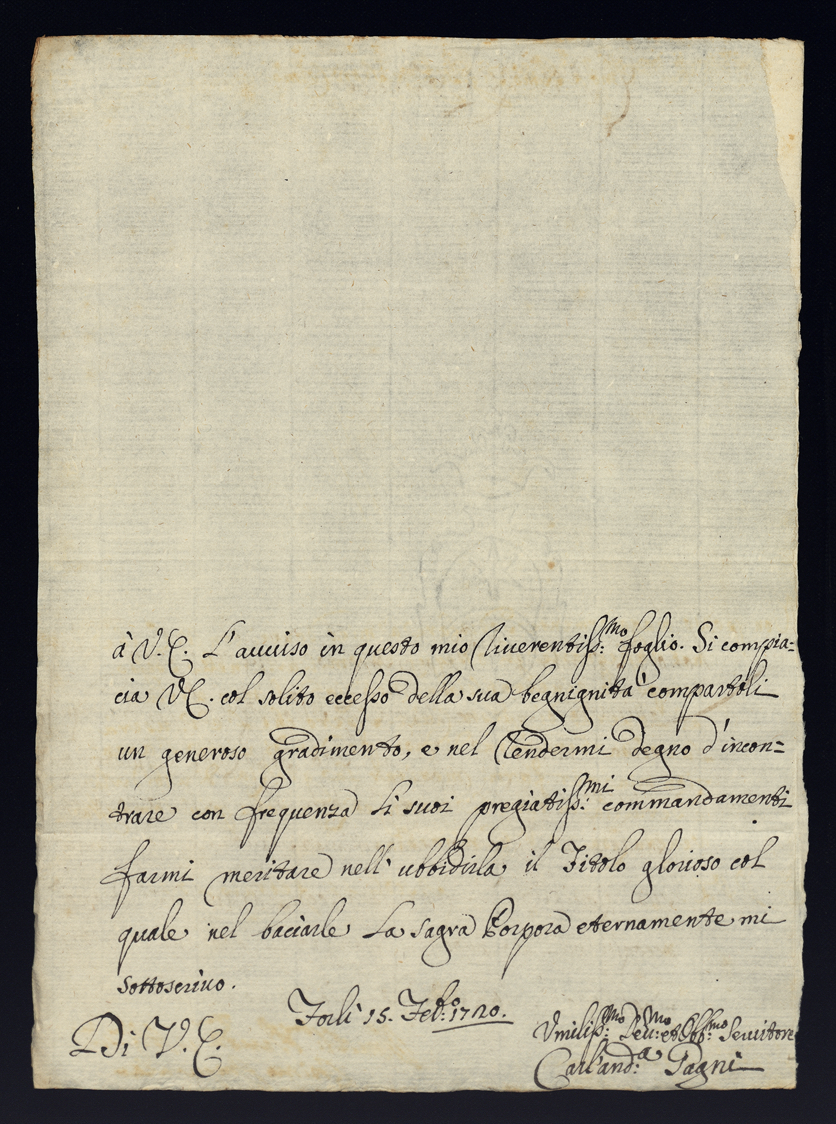 à V. E. L'avviso in questo mio riverentiss:mo foglio. Si compia=
cia V. E. col solito eccesso della sua begnignità compartili
un generoso gradimento, e nel rendermi degno d'incon=
trare con frequenza li suoi pregiatiss:mi commandamenti
farmi meritare nell' ubbidirla il Titolo glorioso col
quale nel baciarle La sagra Porpora eternamente mi
sottoscrivo.
Forlì 15. Feb:o 1720.
Di V. E.
Umiliss:mo Dev:mo et Obb:mo Servitore
Carl'And:a Pagni